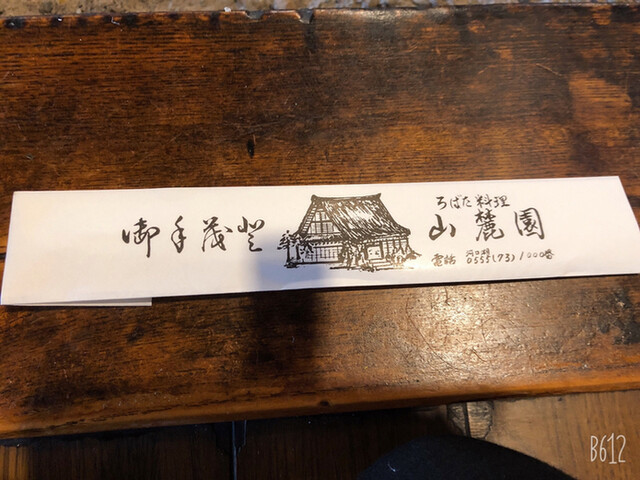 御手茂登
ろばた料理
山麓園
電話 河口湖 0555(73)1000番
B612